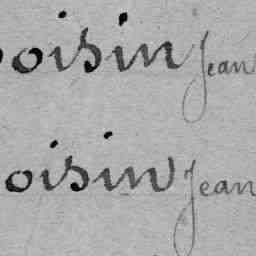 oisin Jean
oisin Jean